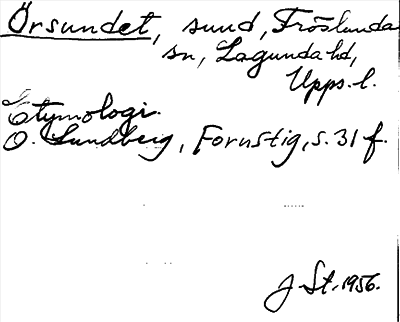 Örsundet, sund, Fröslunda
sn, Lagunda hd,
Upps. l.
Etymologi.
O. Lundberg, Fornstig, s. 31 f.
J. St. 1956.